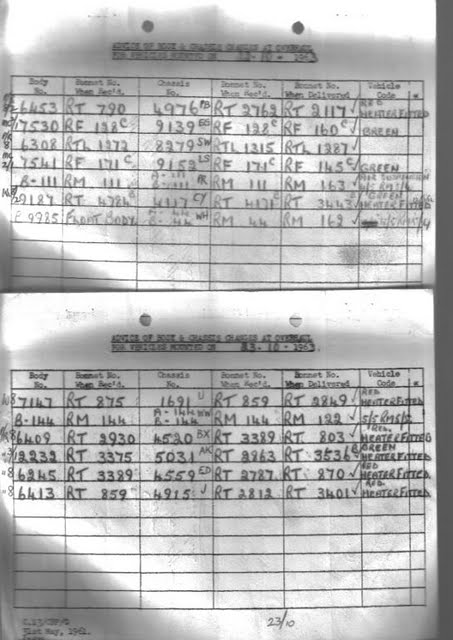 ADVICE OF BODY & CHASSIS CHANGES AT OVERHAUL
FOR VEHICLES MOUNTED ON 22-10-1963
Body No. Bonnet No. When Rec'd. Chassis No. Bonnet No. When Rec'd. Bonnet No. When Delivered Vehicle Code *
6453 RT 790 4976 PB RT 2762 RT 2117 ✓ RED HEATER FITTED
7530 RF 128C 9139 RF 128C RF 160C ✓ GREEN
6308 RTL 1272 8279 SW RTL 1315 RTL 1287 ✓
7541 RF 171C 9152 LS RF 171C RF 145C ✓ GREEN
B-111 RM 111 RM 111 RM 163 ✓
RT 4784 4117 RT 4171C RT 3443 GREEN HEATER FITTED
9985 FRONT BODY WH RM 44 RM 162 ✓
ADVICE OF BODY & CHASSIS CHANGES AT OVERHAUL
FOR VEHICLES MOUNTED ON 23-10-1963.
Body No. Bonnet No. When Rec'd. Chassis No. Bonnet No. When Rec'd. Bonnet No. When Delivered Vehicle Code *
7147 RT 875 1691 U RT 859 RT 2849 ✓ RED HEATER FITTED
B-144 RM 144 A-144 WW B-144 RM 144 RM 122 ✓
6409 RT 2930 4520 BX RT 3389 RT 803 ✓ RED HEATER FITTED
12232 RT 3375 5031 AK RT 2963 RT 3536 GREEN HEATER FITTED
8 6245 RT 3389 4559 ED RT 2787 RT 870 ✓ RED HEATER FITTED
8 6413 RT 859 4915 J RT 2812 RT 3401 ✓ RED HEATER FITTED
31st May, 1961. 23/10